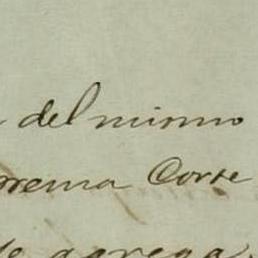 del mismo
prema Corte
se agrega